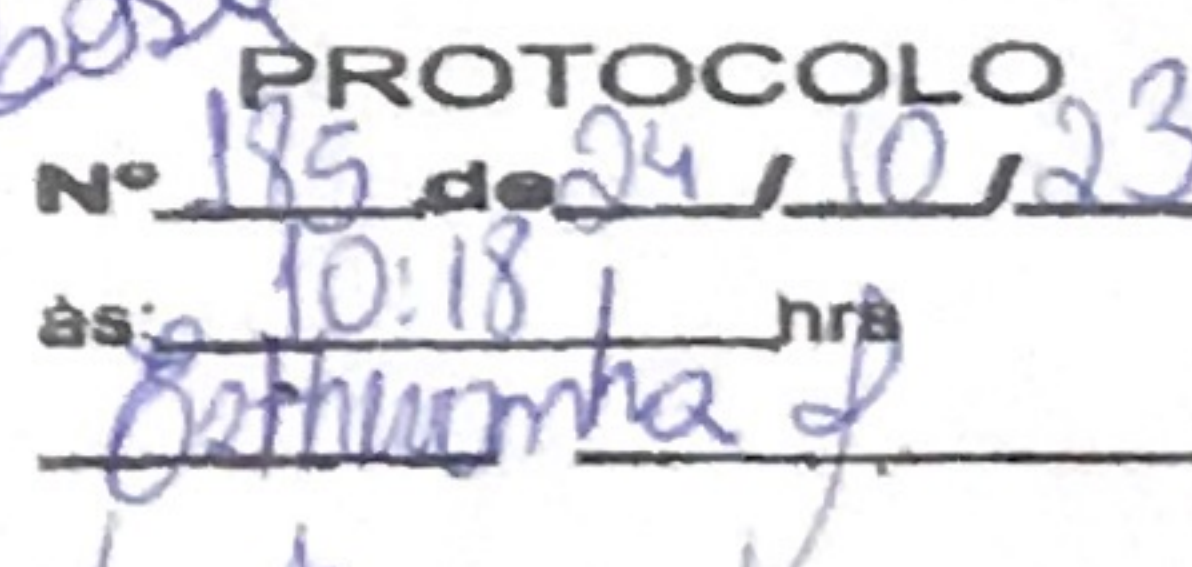 PROTOCOLO
Nº 185 de 24 / 10 / 23
às: 10:18 hrs